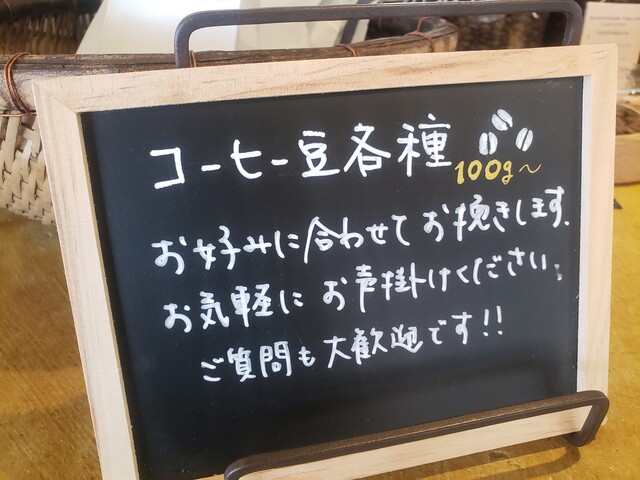 コーヒー豆各種
100g～
お好みに合わせてお挽きします.
お気軽にお声掛けください。
ご質問も大歓迎です!!